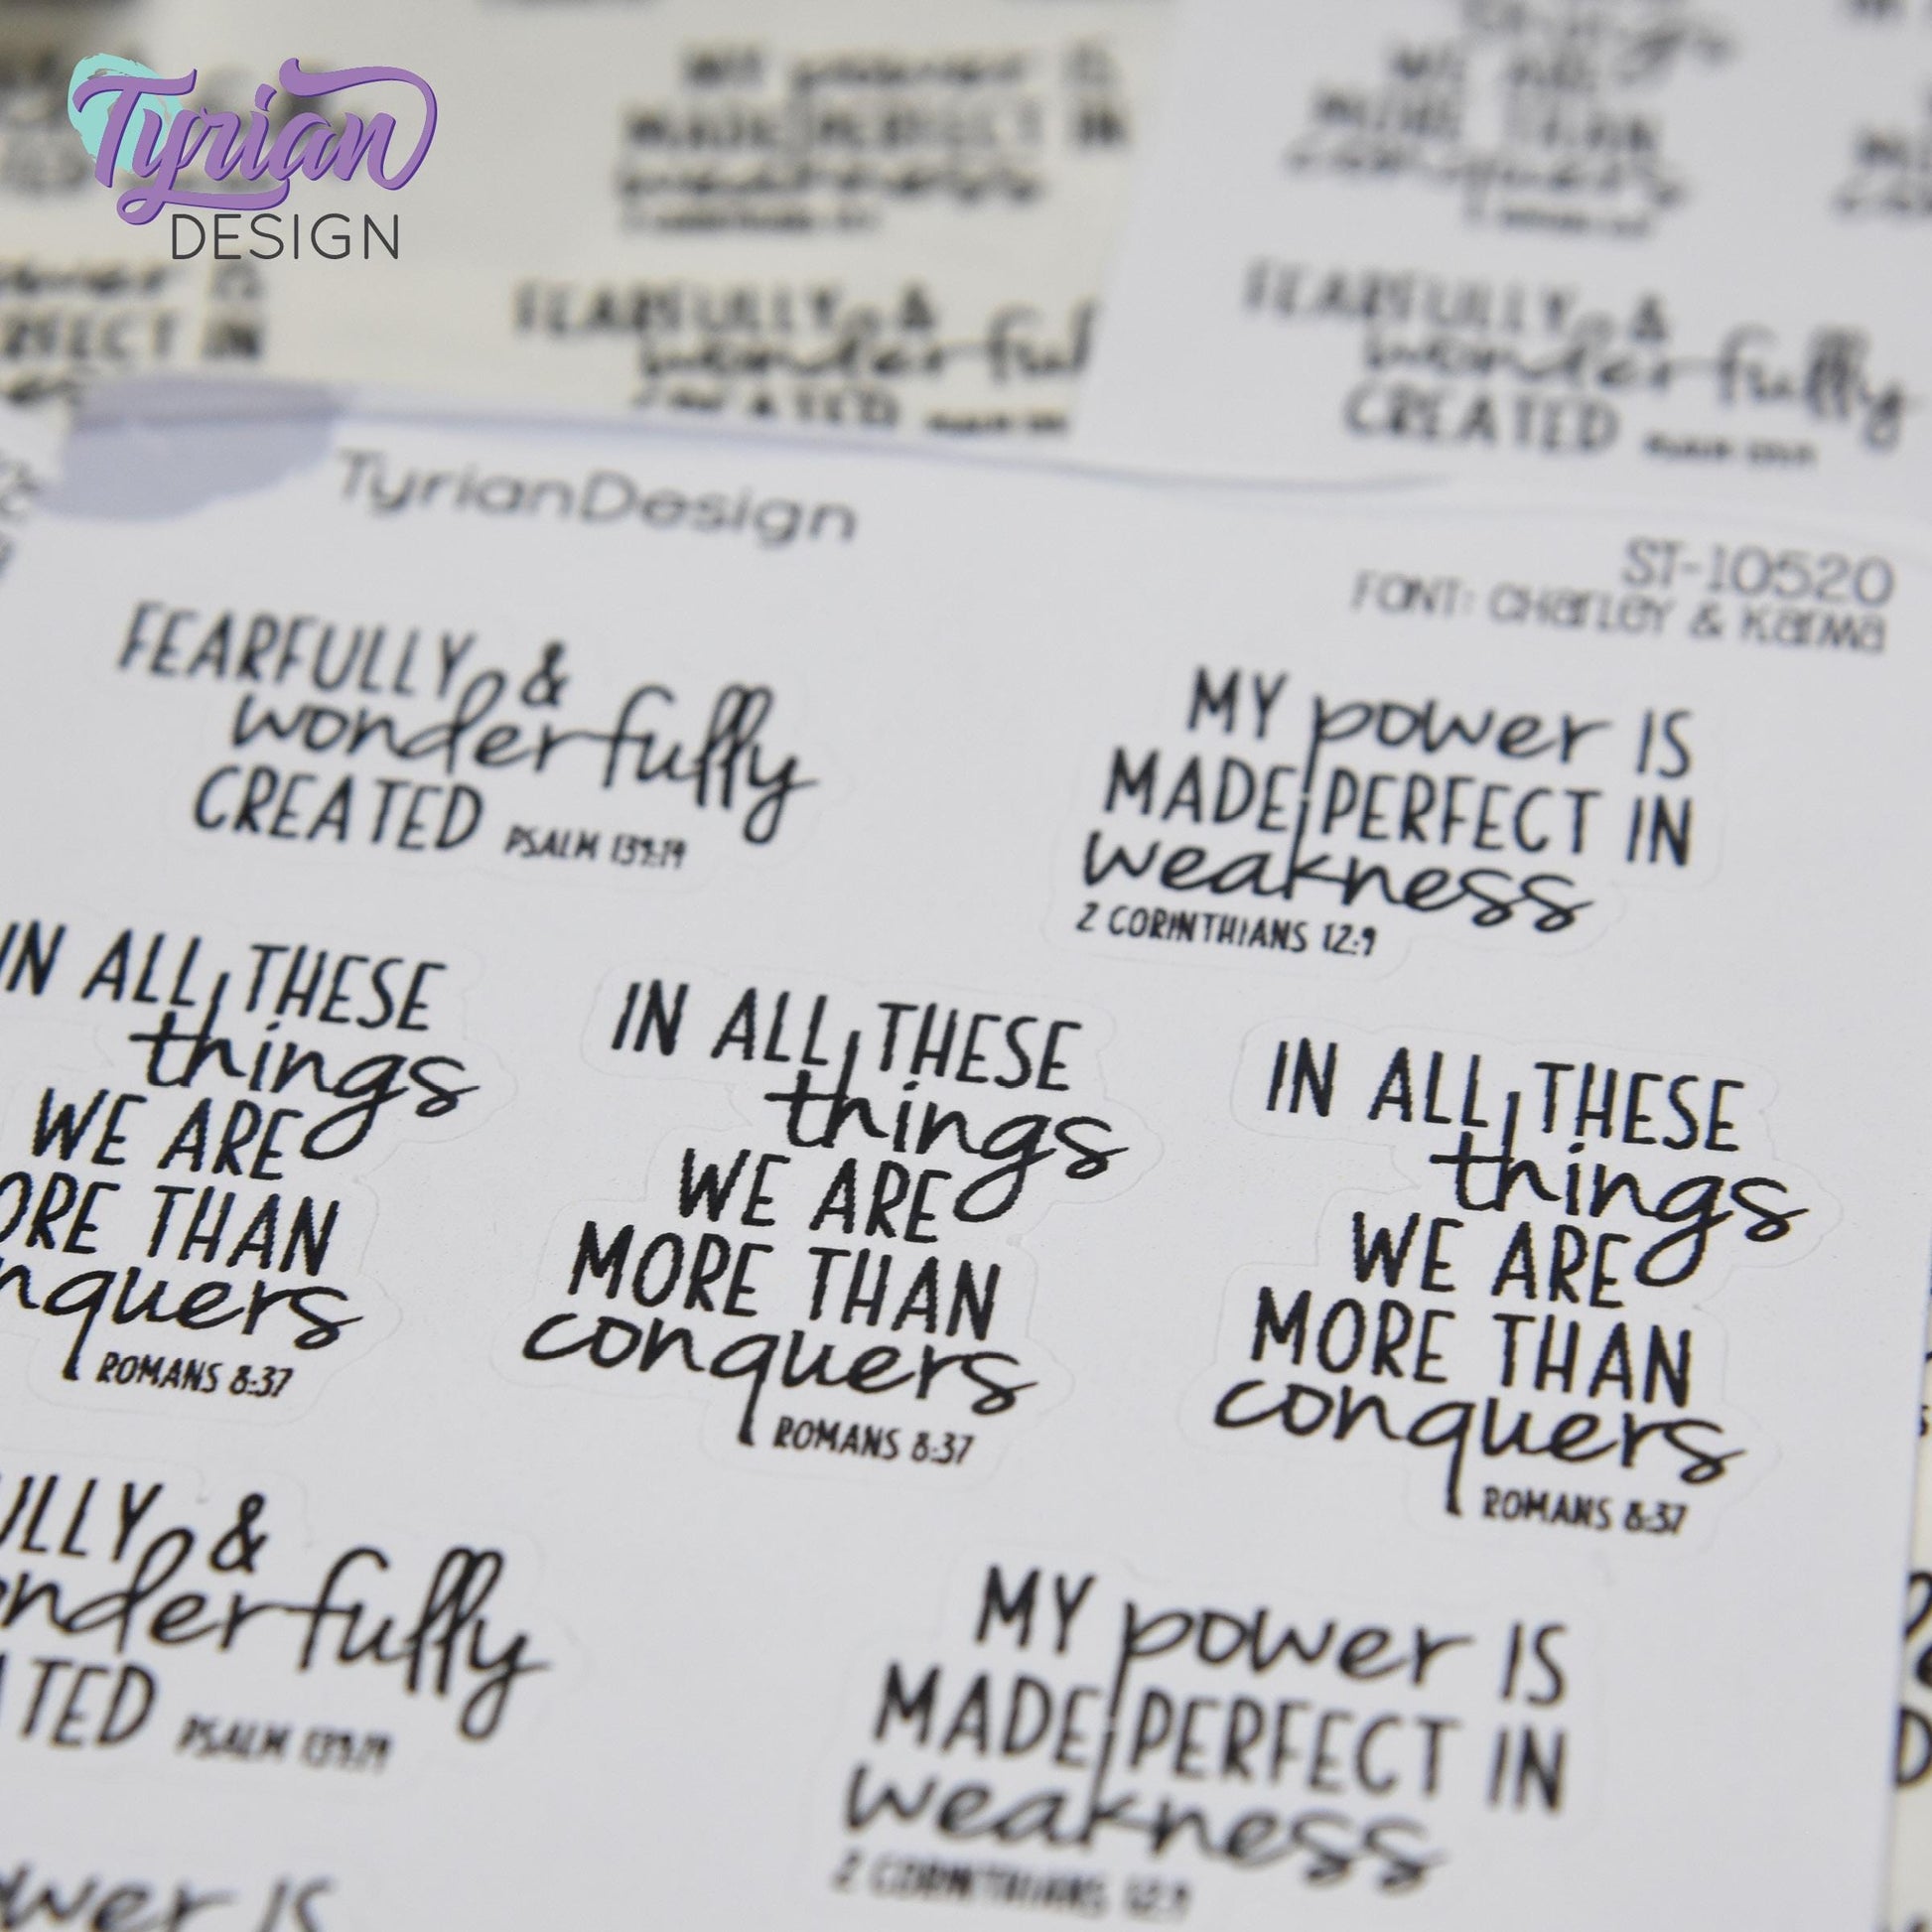 Tyrian
DESIGN
MY power IS
MADE PERFECT IN
weakness
WE ARE
MORE THAN
conquers
FEARFULLY &
wonderful
CREATED
FEARFULLY &
wonderfully
CREATED
RFECT IN
TyrianDesign
ST-10520
FONT: CHARLEY & KARMA
FEARFULLY &
wonderfully
CREATED PSALM 139:14
MY power IS
MADE PERFECT IN
weakness
2 CORINTHIANS 12:9
IN ALL THESE
things
WE ARE
ORE THAN
nquers
ROMANS 8:37
IN ALL THESE
things
WE ARE
MORE THAN
conquers
ROMANS 8:37
IN ALL THESE
things
WE ARE
MORE THAN
conquers
ROMANS 8:37
ULLY &
nderfully
ATED PSALM 139:14
MY power IS
MADE PERFECT IN
weakness
2 CORINTHIANS 12:9
wer IS